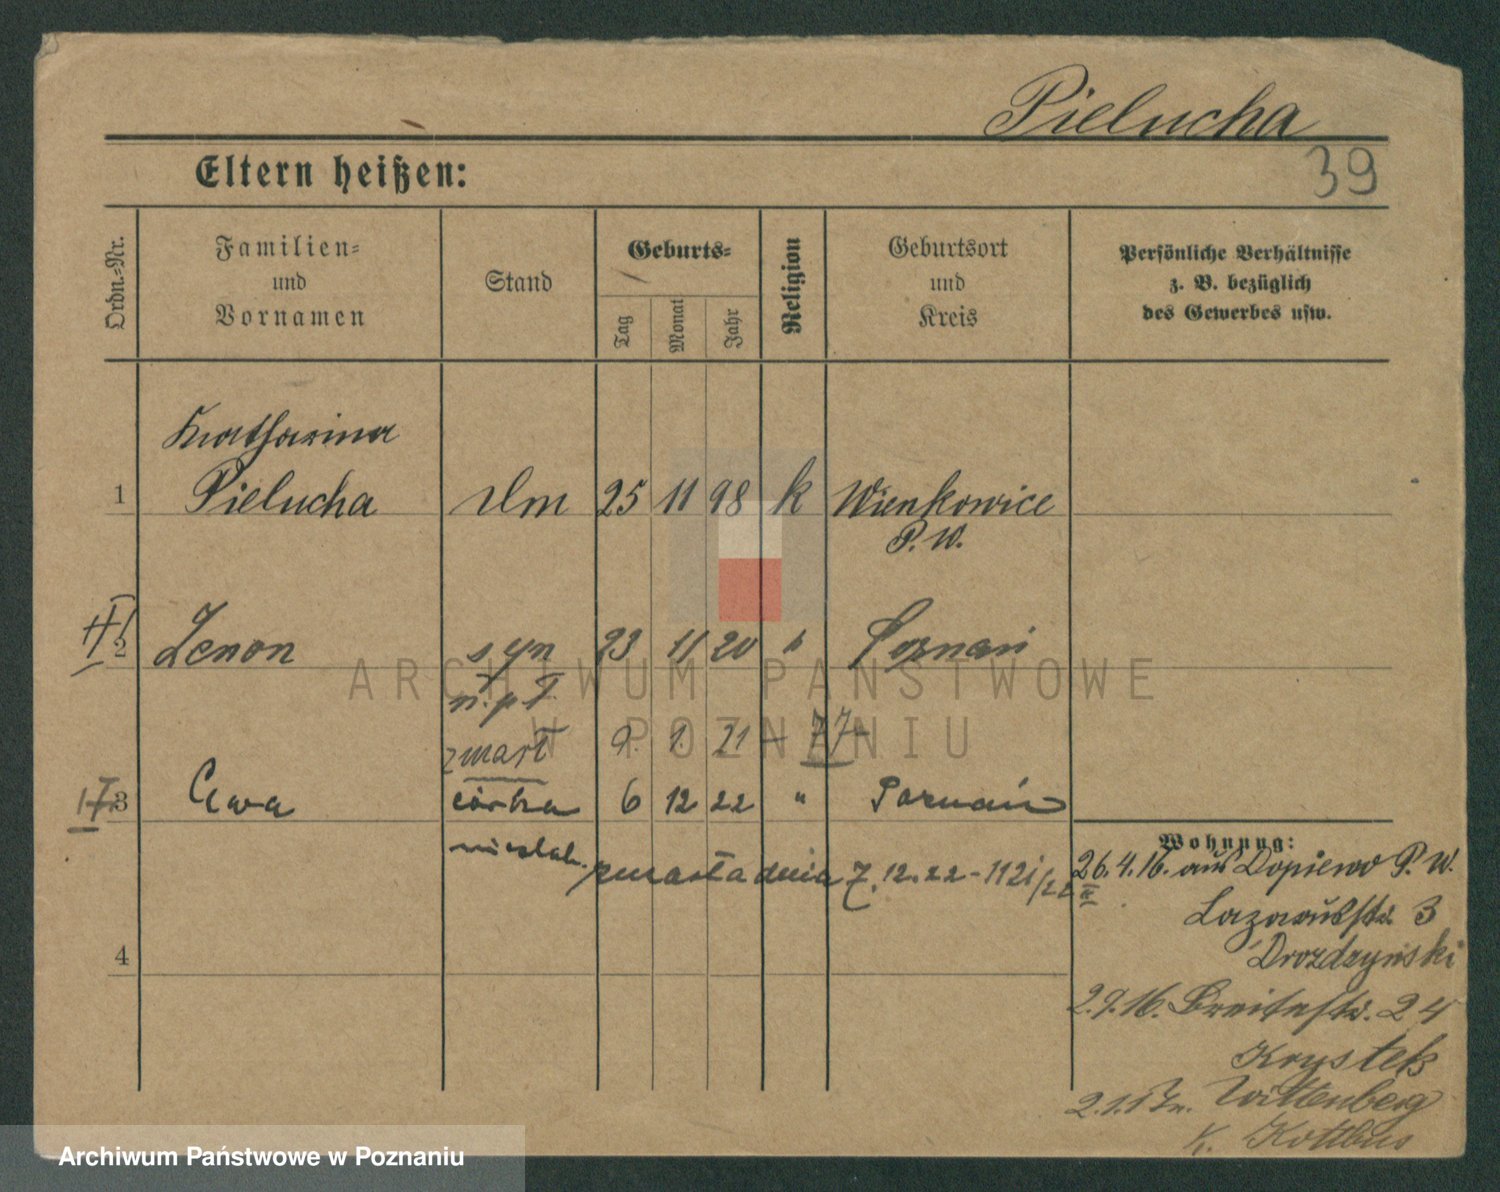 Pielucha
39
Eltern heißen:
Ordn.-Nr.
Familien-
und
Vornamen
Stand
Geburts-
Tag
Monat
Jahr
Religion
Geburtsort
und
Kreis
Persönliche Verhältnisse
z. B. bezüglich
des Gewerbes usw.
Katharina
1 Pielucha 25 11 98 k Wienkowice
P. W.
2 Zenon syn 23 11 20 " Poznań
zmarł 9. 1. 21
3 Ewa córka 6 12 22 " Poznań
zmarła dnia 7. 12. 22 - 1121/22
4
Wohnung:
26.4.16. aus Dopiewo P. W.
Lazarusstr. 3
Drozdzyński
2.9.16. Breitestr. 24
Krystek
2.1.17 n. Wittenberg
K. Kottbus
ARCHIWUM PAŃSTWOWE
W POZNANIU
Archiwum Państwowe w Poznaniu